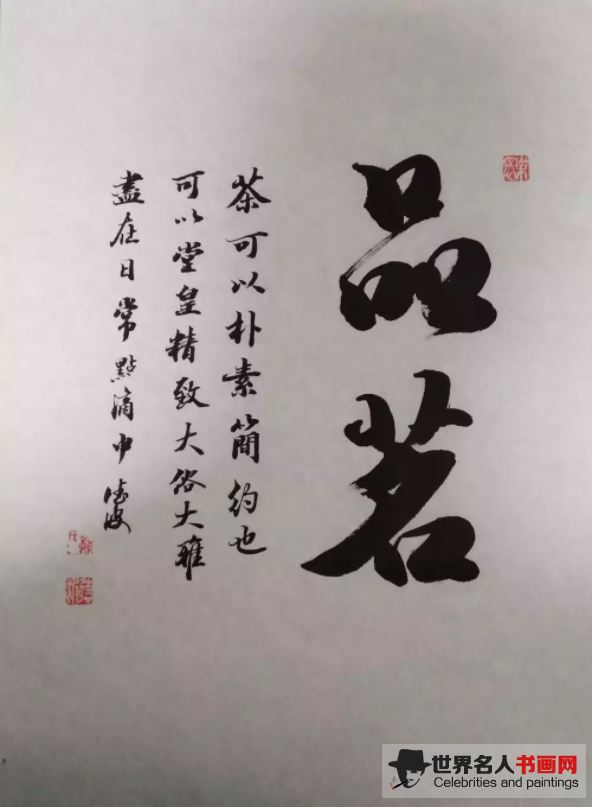 品茗
茶可以朴素簡約也
可以堂皇精致大俗大雅
盡在日常點滴中
世界名人书画网
Celebrities and paintings